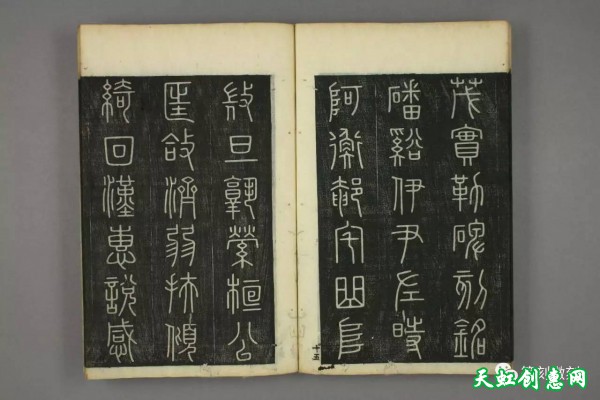 茂實勒碑刻銘
磻谿伊尹左時
阿衡奄宅曲阜
十五
微旦孰營桓公
匡合濟弱扶傾
綺回漢惠說感
刻教
天虹创意网